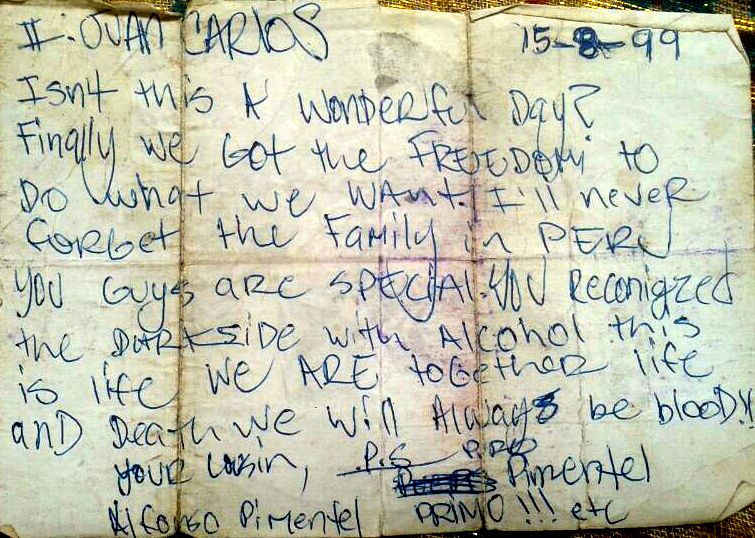 II. JUAN CARLOS 15-8-99
Isn't this A Wonderful Day?
Finally we Got the FREEDOM to
Do what we WANT. I'll never
forget the Family in PERU
YOU GUYS are SPECIAL. YOU Reconigzed
the DARKSIDE with Alcohol this
is life we ARE together life
and Death we will Always be blooD!!
your cusin, P.S PRO
Pimentel
Alfonso Pimentel PRIMO!!! etc